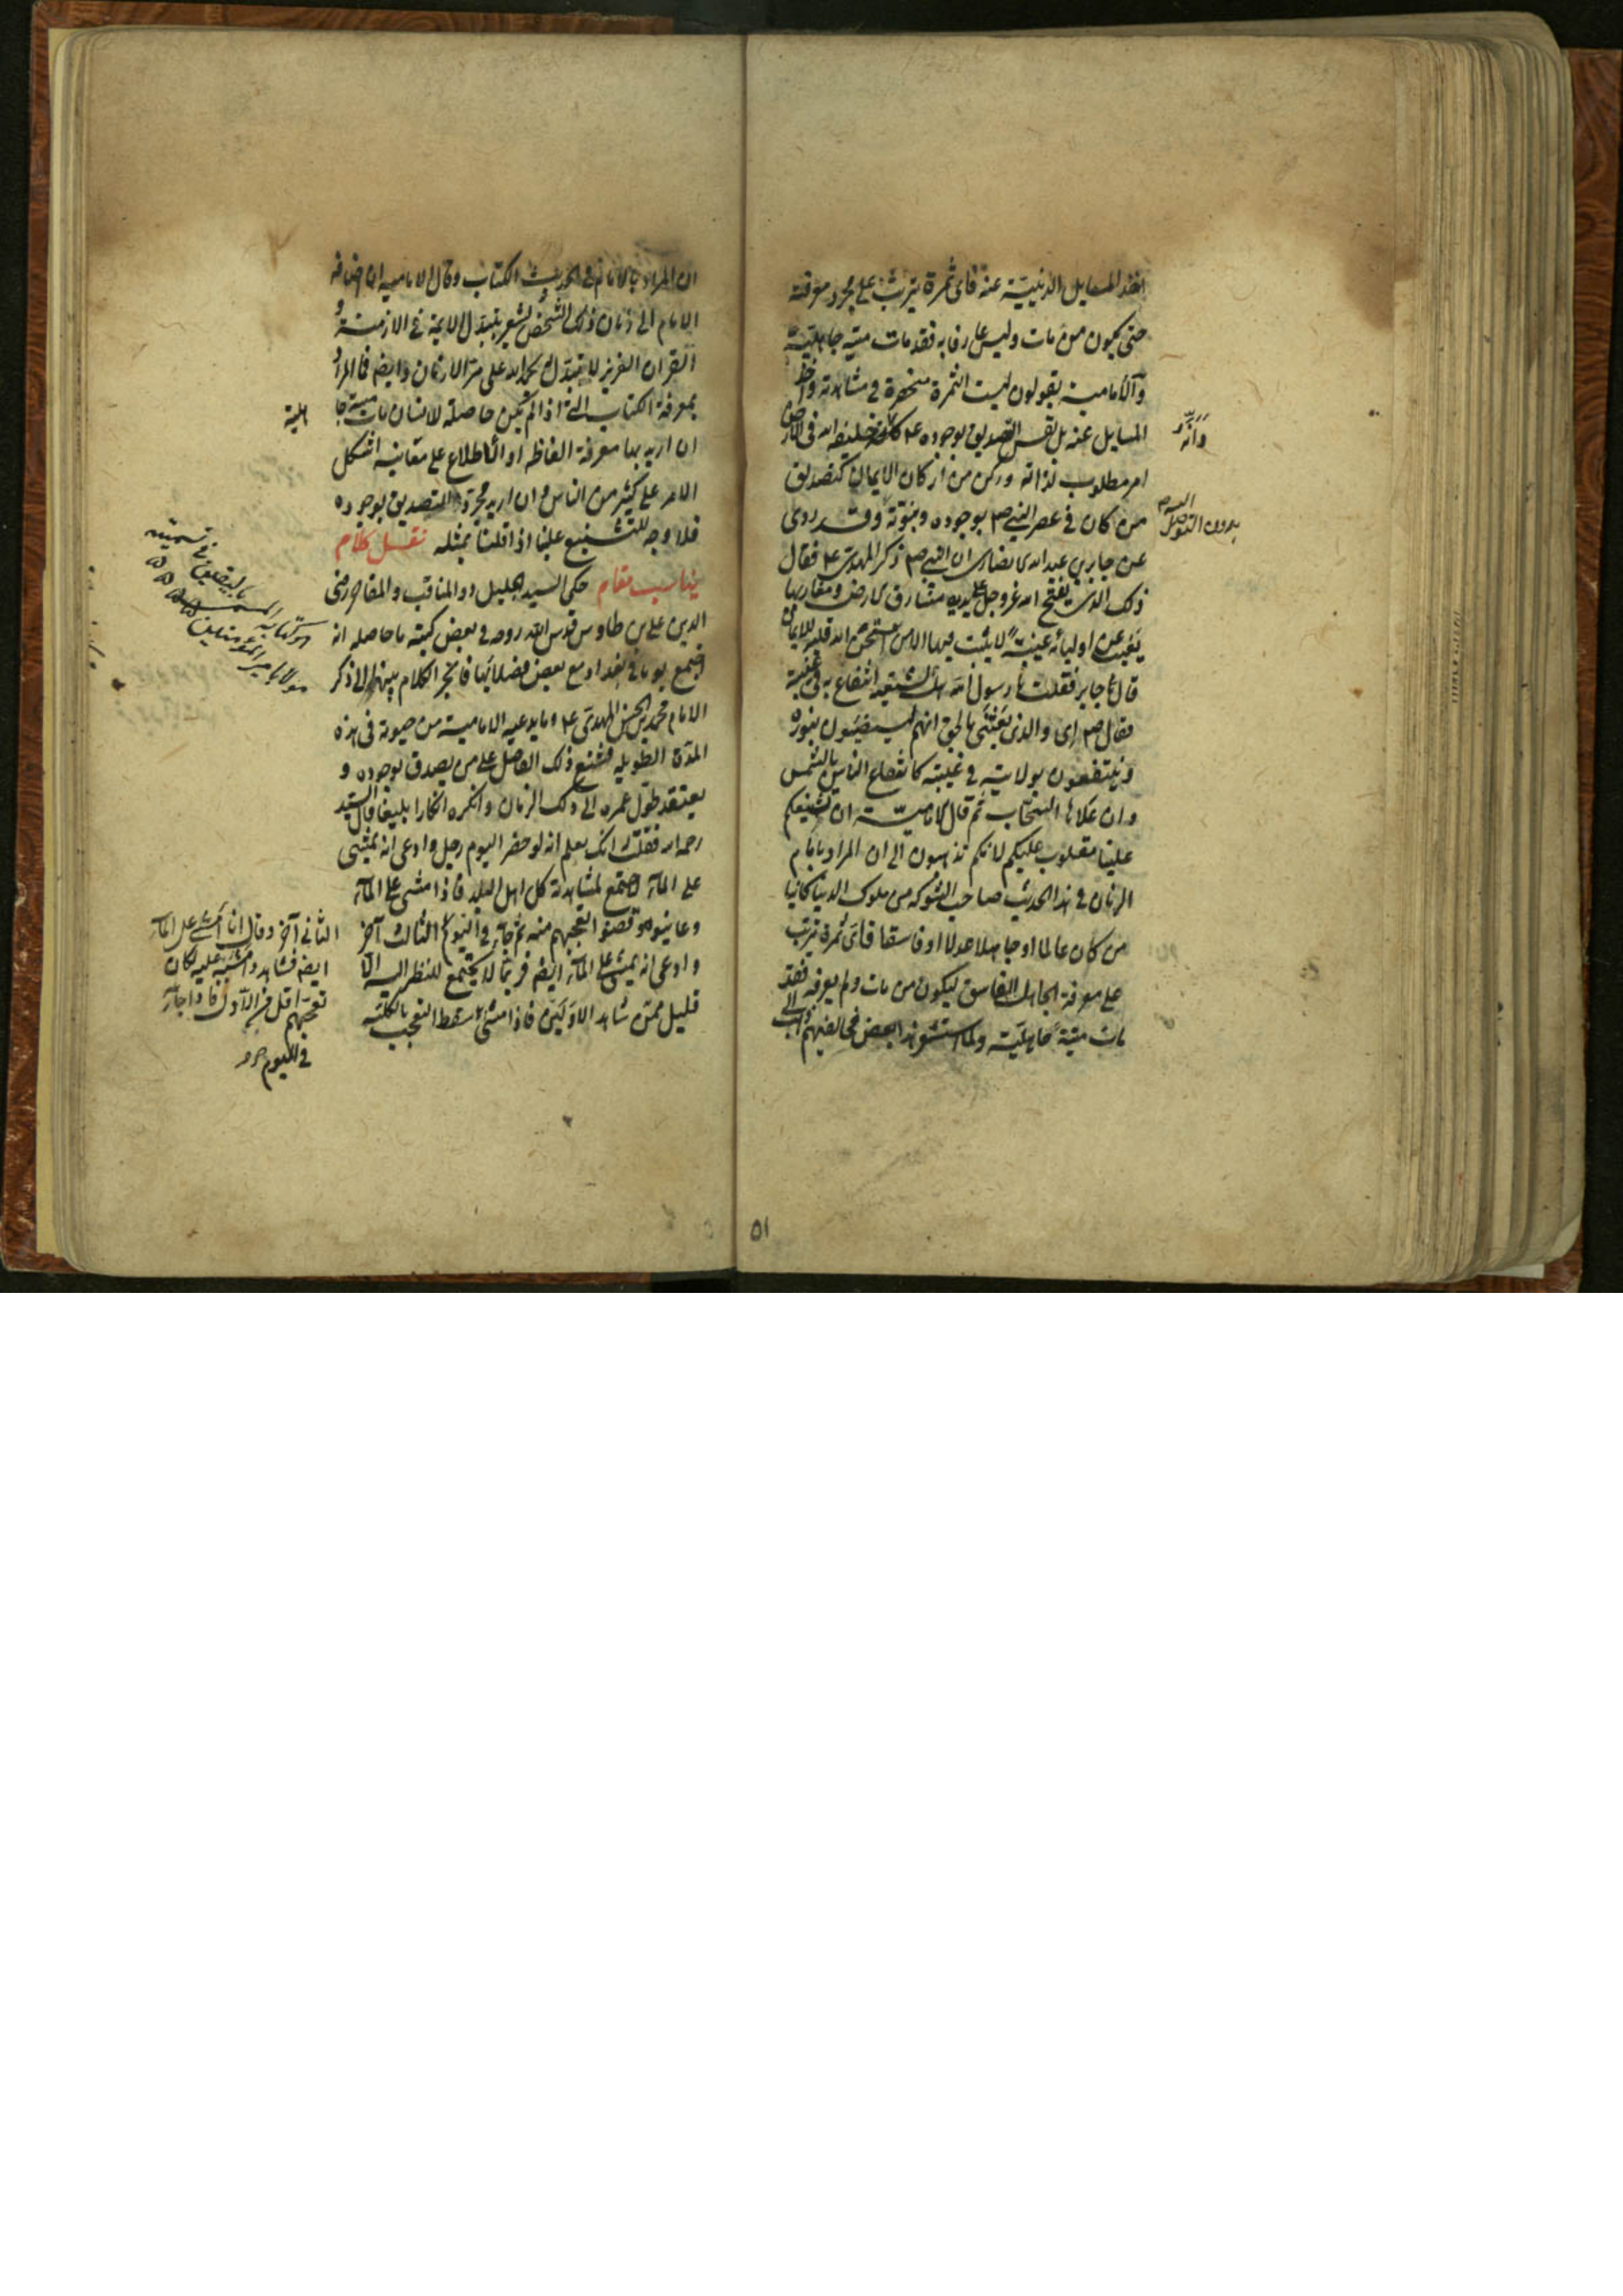 اخذ المسايل الدينية عنه فاى ثمرة يترتب على مجرد معرفته
حتى يكون من مات وليس عارفا به فقد مات ميتة جاهلية
والامامية يقولون ليست الثمرة منحصرة فى مشاهدته واخذ
المسايل عنه بل نفس التصديق بوجوده ع وانه خليفة الله فى الارض
امر مطلوب لذاته وركن من اركان الايمان كتصديق
من كان فى عصر النبى ص بوجوده ونبوته وقد روى
عن جابر بن عبد الله الانصارى ان النبى ص ذكر المهدى ع فقال
ذلك الذى يفتح الله عز وجل على يديه مشارق الارض ومغاربها
يغيب عن اوليائه غيبة لا يثبت فيها الا من امتحن الله قلبه للايمان
قال جابر فقلت يا رسول الله هل لشيعته انتفاع به فى غيبته
فقال ص اى والذى بعثنى بالحق انهم ليستضيئون بنوره
وينتفعون بولايته فى غيبته كانتفاع الناس بالشمس
وان علاها السحاب ثم قال الامامية ان تشنيعكم
علينا مقلوب عليكم لانكم تذهبون الى ان المراد بامام
الزمان فى هذا الحديث صاحب الشوكة من ملوك الدنيا كائنا
من كان عالما او جاهلا عدلا او فاسقا فاى ثمرة تترتب
على معرفة الجاهل الفاسق ليكون من مات ولم يعرفه فقد
مات ميتة جاهلية ولما استشعر هذا بعض مخالفيهم ذهب الى
وانه
بدون التوصل اليه
٥١
ان المراد بالامام فى الحديث الكتاب وقال الامامية ان اضافة
الامام الى زمان ذلك الشخص يشعر بتبدل الائمة فى الازمنة و
القران العزيز لا يتبدل بحمد الله على مر الازمان وايضا فما المراد
بمعرفة الكتاب التى اذا لم تكن حاصلة للانسان مات ميتة جا
هلية
ان اريد بها معرفة الفاظه او الاطلاع على معانيه اشكل
الامر على كثير من الناس وان اريد مجرد التصديق بوجوده
فلا وجه للتشنيع علينا اذا قلنا بمثله نقل كلام
يناسب مقام حكى السيد الجليل ذو المناقب والمفاخر رضى
الدين على بن طاوس قدس الله روحه فى بعض كتبه ما حاصله انه
اجتمع يوما فى بغداد مع بعض فضلائها فانجر الكلام بينهما الى ذكر
الامام محمد بن الحسن المهدى ع وما يدعيه الامامية من حيوته فى هذه
المدة الطويلة فشنع ذلك الفاضل على من يصدق بوجوده و
يعتقد طول عمره الى ذلك الزمان وانكره انكارا بليغا قال السيد
رحمه الله فقلت له انك تعلم انه لو حضر اليوم رجل وادعى انه يمشى
على الماء لاجتمع لمشاهدته كل اهل البلد فاذا مشى على الماء
وعاينوه وقضوا تعجبهم منه ثم جاء فى اليوم الثالث آخر
وادعى انه يمشى على الماء ايضا فربما لا يجتمع للنظر اليه الا
قليل ممن شاهد الاولين فاذا مشى سقط التعجب بالكلية
الثانى آخر وقال انا امشى على الماء
ايضا فشاهدوا مشيه عليه لكان
تعجبهم اقل من الاول فاذا جاء
فى اليوم